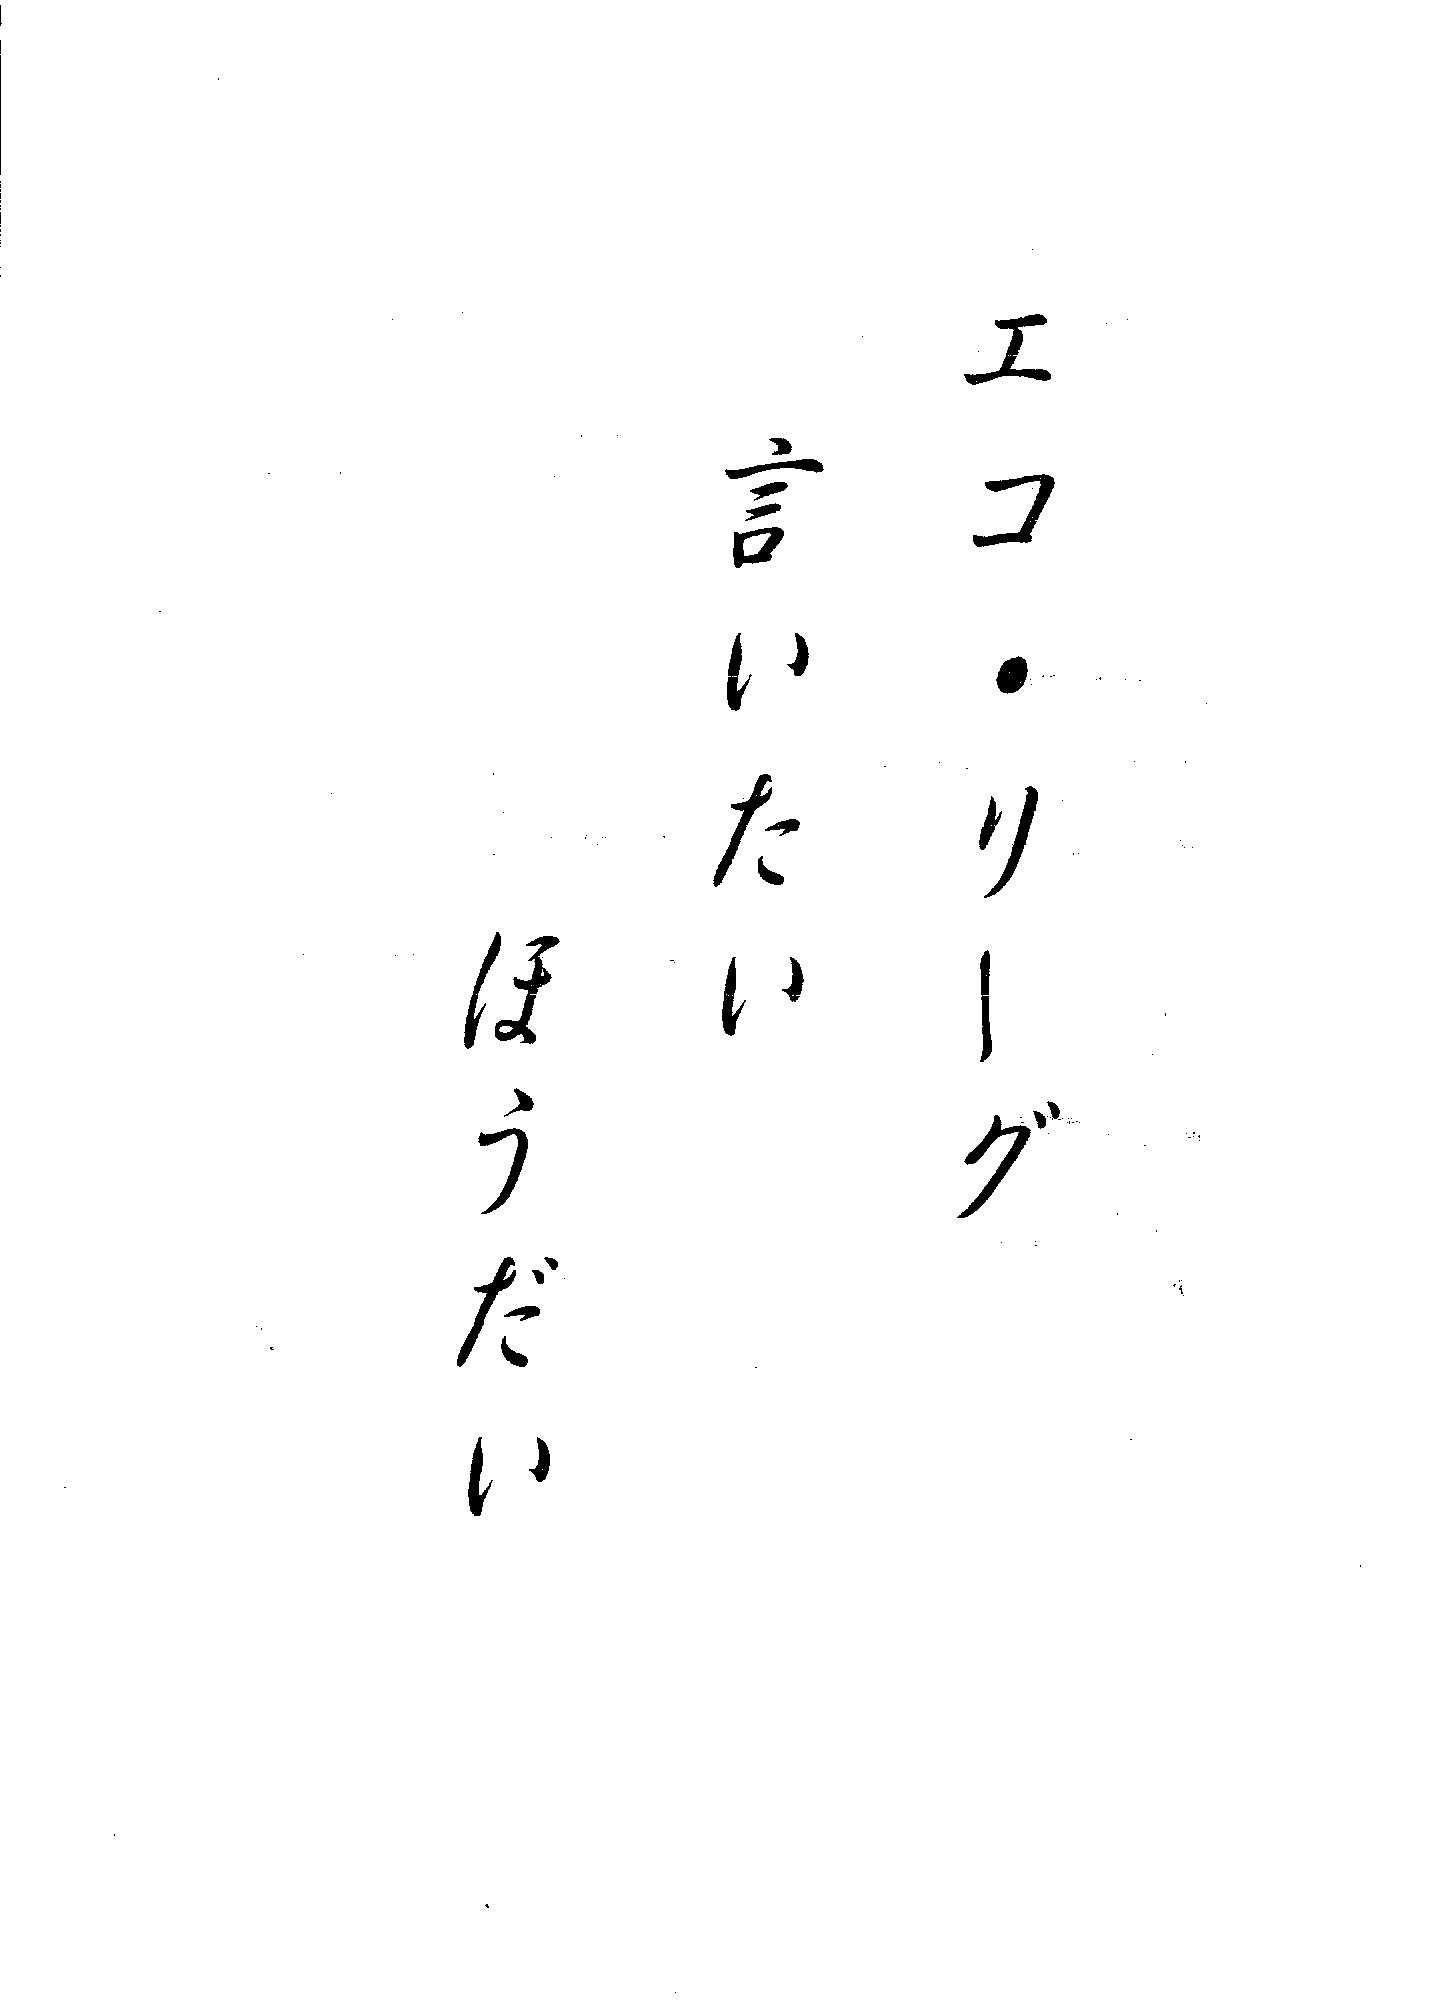 エコ・リーグ
言いたい
ほうだい